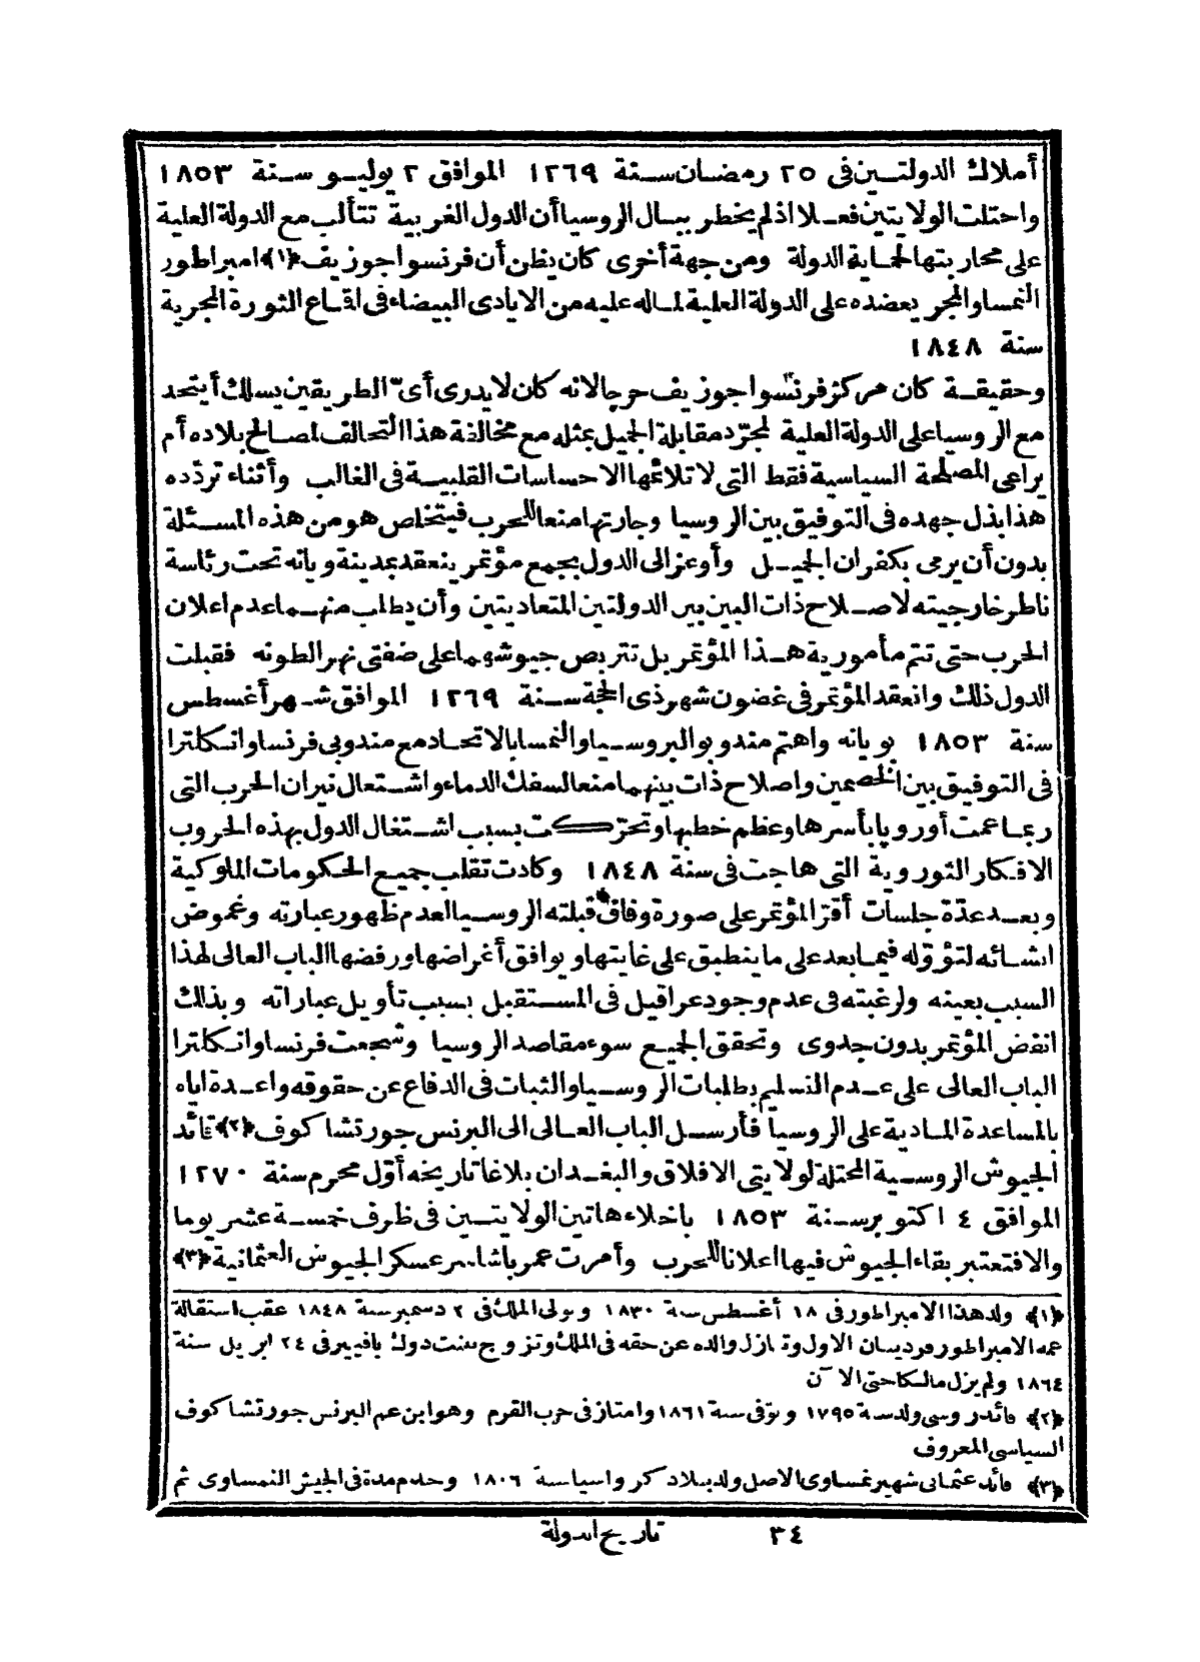 أملاك الدولتين فى ٢٥ رمضان سنة ١٢٦٩ الموافق ٢ يوليو سنة ١٨٥٣
واحتلت الولايتين فعلا اذ لم يخطر ببال الروسيا أن الدول الغربية تتألب مع الدولة العلية
على محاربتها لحماية الدولة ومن جهة أخرى كان يظن أن فرنسوا جوزيف ﴿١﴾ امبراطور
النمسا والمجر يعضده على الدولة العلية لما له عليه من الايادى البيضاء فى اقماع الثورة المجرية
سنة ١٨٤٨
وحقيقة كان مركز فرنسوا جوزيف حرجا لانه كان لا يدرى أىّ الطريقين يسلك أيتحد
مع الروسيا على الدولة العلية لمجرّد مقابلة الجميل بمثله مع مخالفة هذا التحالف لمصالح بلاده أم
يراعى المصلحة السياسية فقط التى لا تلائمها الاحساسات القلبية فى الغالب وأثناء تردّده
هذا بذل جهده فى التوفيق بين الروسيا وجارتها منعا للحرب فيتخلص هو من هذه المسئلة
بدون أن يرمى بكفران الجميل وأوعز الى الدول بجمع مؤتمر ينعقد بمدينة ويانه تحت رئاسة
ناظر خارجيته لاصلاح ذات البين بين الدولتين المتعاديتين وأن يطلب منهما عدم اعلان
الحرب حتى تتم مأمورية هذا المؤتمر بل تتربص جيوشهما على ضفتى نهر الطونه فقبلت
الدول ذلك وانعقد المؤتمر فى غضون شهر ذى الحجة سنة ١٢٦٩ الموافق شهر أغسطس
سنة ١٨٥٣ بويانه واهتم مندوبو البروسيا والنمسا بالاتحاد مع مندوبى فرنسا وانكلترا
فى التوفيق بين الخصمين واصلاح ذات بينهما منعا لسفك الدماء واشتعال نيران الحرب التى
ربما عمت أوروپا بأسرها وعظم خطبها وتحرّكت بسبب اشتغال الدول بهذه الحروب
الافكار الثوروية التى هاجت فى سنة ١٨٤٨ وكادت تقلب جميع الحكومات الملوكية
وبعد عدّة جلسات أقرّ المؤتمر على صورة وفاق قبلته الروسيا لعدم ظهور عبارته وغموض
انشائه لتؤوّله فيما بعد على ما ينطبق على غايتها ويوافق أغراضها ورفضها الباب العالى لهذا
السبب بعينه ولرغبته فى عدم وجود عراقيل فى المستقبل بسبب تأويل عباراته وبذلك
انفض المؤتمر بدون جدوى وتحقق الجميع سوء مقاصد الروسيا وشجعت فرنسا وانكلترا
الباب العالى على عدم التسليم بطلبات الروسيا والثبات فى الدفاع عن حقوقه واعدة اياه
بالمساعدة المادية على الروسيا فأرسل الباب العالى الى البرنس جورتشاكوف ﴿٢﴾ قائد
الجيوش الروسية المحتلة لولايتى الافلاق والبغدان بلاغا تاريخه أوّل محرم سنة ١٢٧٠
الموافق ٤ اكتوبر سنة ١٨٥٣ باخلاء هاتين الولايتين فى ظرف خمسة عشر يوما
والا فتعتبر بقاء الجيوش فيها اعلانا للحرب وأمرت عمر باشا سر عسكر الجيوش العثمانية ﴿٣﴾
﴿١﴾ ولد هذا الامبراطور فى ١٨ أغسطس سنة ١٨٣٠ وتولى الملك فى ٢ دسمبر سنة ١٨٤٨ عقب استقالة
عمه الامبراطور فرديسان الاول وتنازل والده عن حقه فى الملك وتزوج ببنت دوك بافيير فى ٢٤ ابريل سنة
١٨٦٤ ولم يزل مالكا حتى الآن
﴿٢﴾ قائد روسى ولد سنة ١٧٩٥ وتوفى سنة ١٨٦١ وامتاز فى حرب القرم وهو ابن عم البرنس جورتشاكوف
السياسى المعروف
﴿٣﴾ قائد عثمانى شهير نمساوى الاصل ولد ببلاد كرواسيا سنة ١٨٠٦ وخدم مدة فى الجيش النمساوى ثم
٣٤ تاريخ الدولة